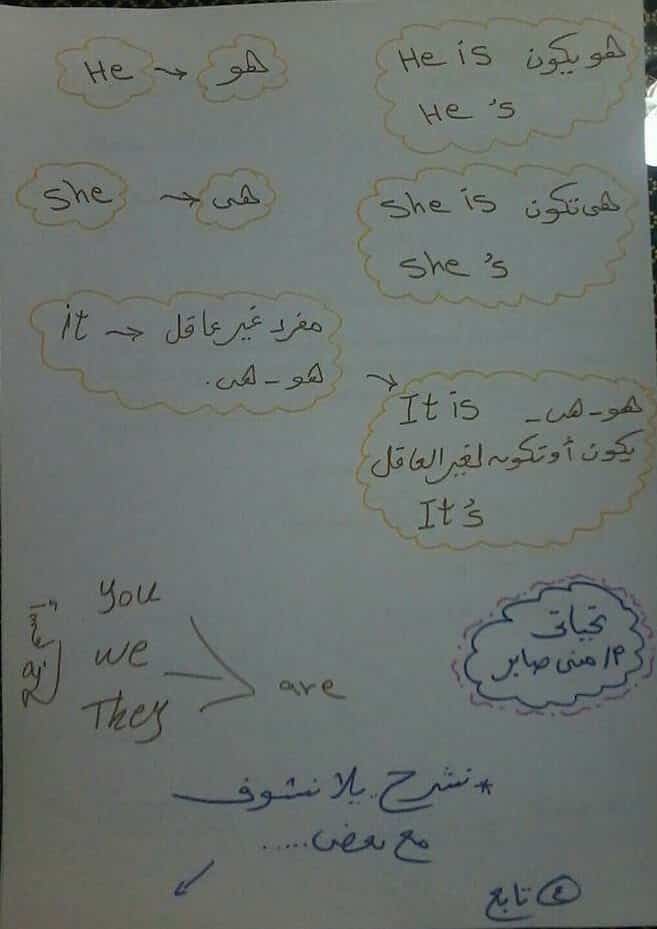 He → هو
He is هو يكون
He's
she → هى
she is هى تكون
she's
it → مفرد غير عاقل
هو - هى.
→ It is هو - هى -
يكون أو تكون لغير العاقل
It's
you
we
They
are
تحياتى
م/ منى صابر
* نشرح يلا نشوف
مع بعض.....
تابع